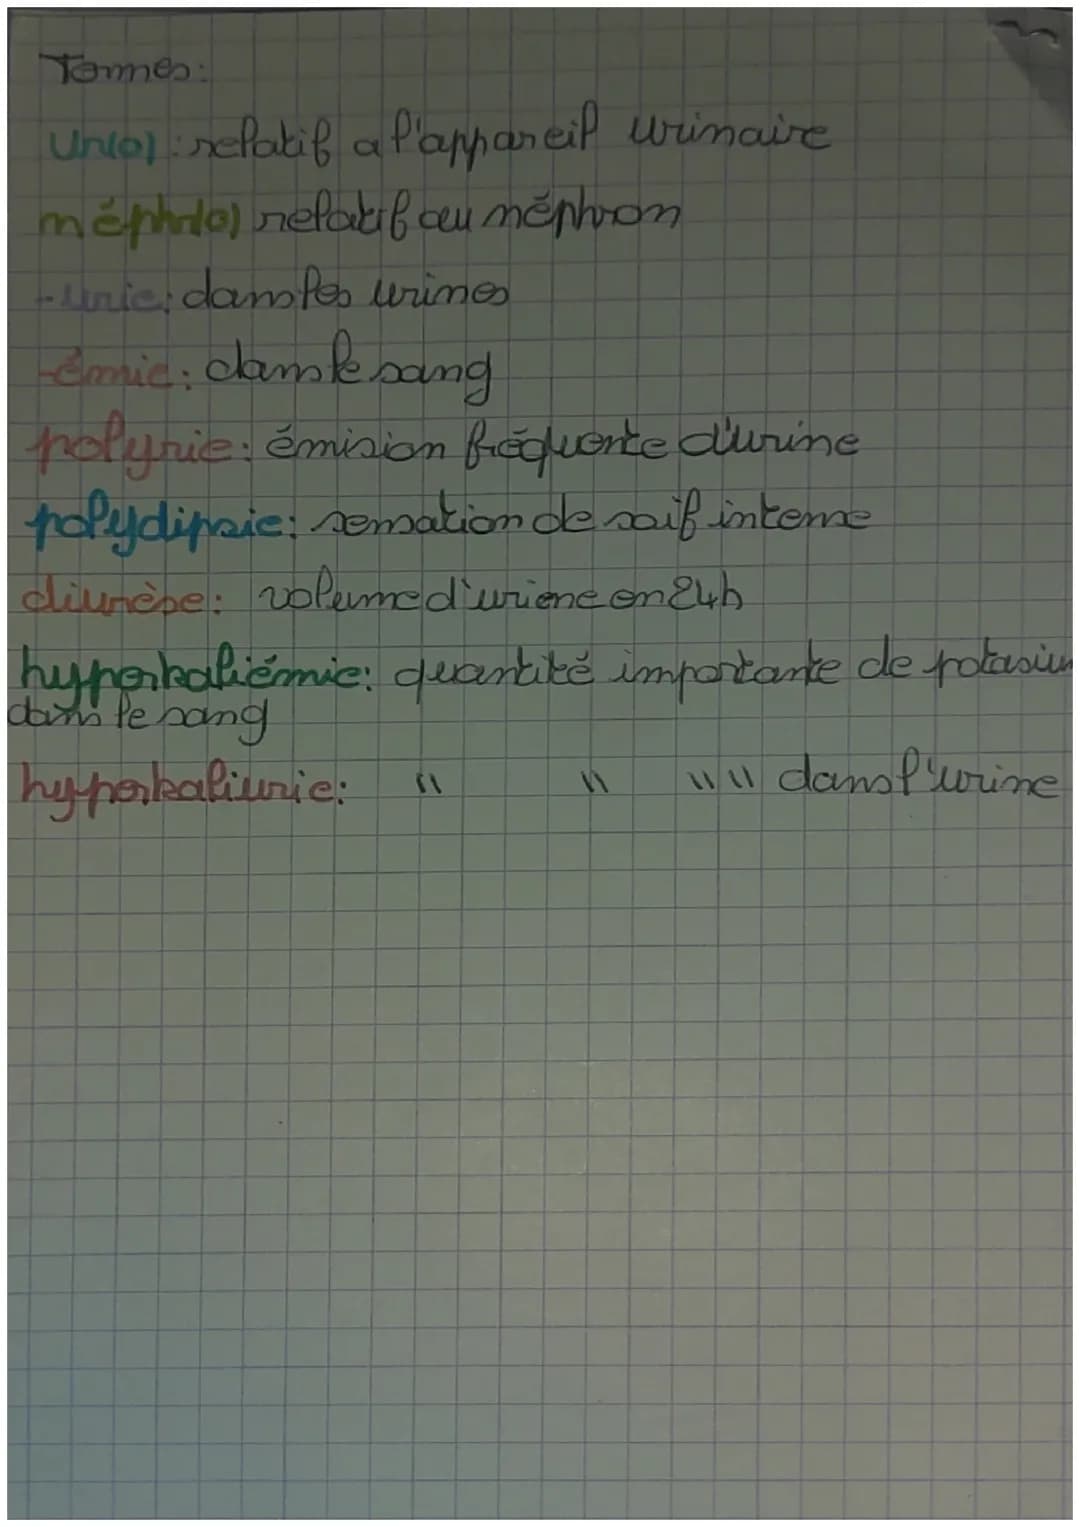 Termes:
Ur(o) : relatif a l'appareil urinaire
néphr(o) relatif au néphron
-urie: dans les urines
-émie: dans le sang
polyurie: émision fréquente d'urine
polydipsie: sensation de soif intense
diurèse: volume d'uriene en 24h
hyperkaliémie: quantité importante de potasium
dans le sang
hyperkaliurie: " " " " dans l'urine